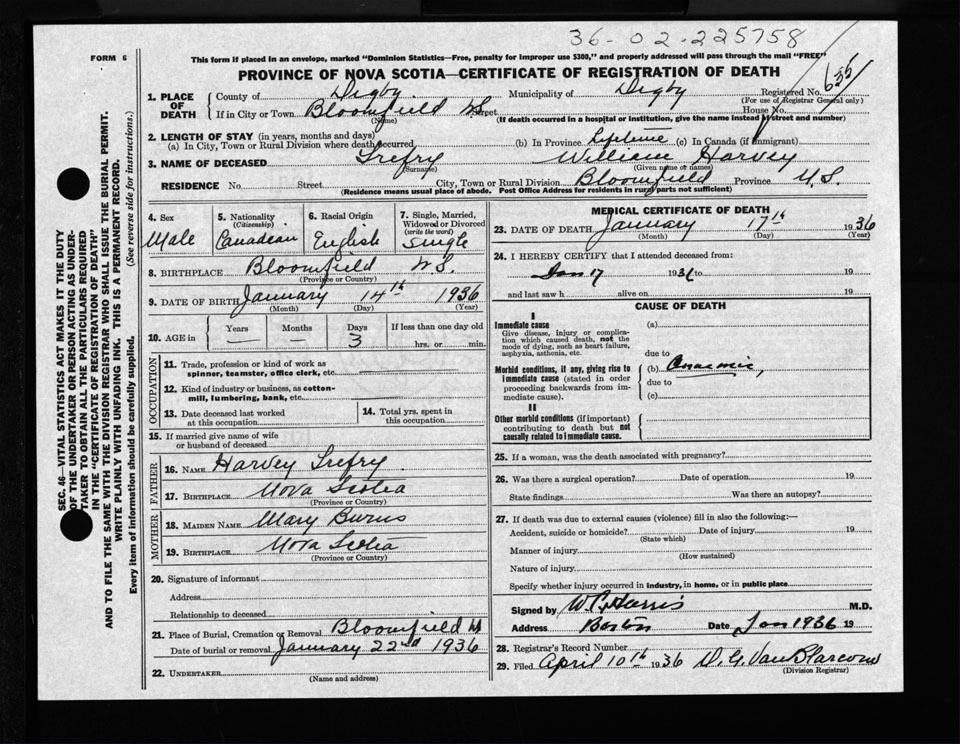 36-02-225758
FORM 6
This form if placed in an envelope, marked "Dominion Statistics—Free, penalty for improper use $300," and properly addressed will pass through the mail "FREE"
PROVINCE OF NOVA SCOTIA—CERTIFICATE OF REGISTRATION OF DEATH
635
1. PLACE OF DEATH County of Digby Municipality of Digby Registered No.
(For use of Registrar General only)
If in City or Town Bloomfield Street House No.
(Name) (If death occurred in a hospital or institution, give the name instead of street and number)
2. LENGTH OF STAY (in years, months and days)
(a) In City, Town or Rural Division where death occurred (b) In Province Lifetime (c) In Canada (if immigrant)
3. NAME OF DECEASED Trefry William Harvey
(Surname) (Given name or names)
RESIDENCE No. Street City, Town or Rural Division Bloomfield Province N.S.
(Residence means usual place of abode. Post Office Address for residents in rural parts not sufficient)
SEC. 46—VITAL STATISTICS ACT MAKES IT THE DUTY
OF THE UNDERTAKER OR PERSON ACTING AS UNDER-
TAKER TO OBTAIN ALL THE PARTICULARS REQUIRED
IN THE "CERTIFICATE OF REGISTRATION OF DEATH"
AND TO FILE THE SAME WITH THE DIVISION REGISTRAR WHO SHALL ISSUE THE BURIAL PERMIT.
WRITE PLAINLY WITH UNFADING INK. THIS IS A PERMANENT RECORD.
Every item of information should be carefully supplied. (See reverse side for instructions.)
4. Sex 5. Nationality (Citizenship) 6. Racial Origin 7. Single, Married, Widowed or Divorced (write the word)
Male Canadian English Single
8. BIRTHPLACE Bloomfield N.S.
(Province or Country)
9. DATE OF BIRTH January 14th 1936
(Month) (Day) (Year)
10. AGE in Years Months Days If less than one day old
— — 3 hrs. or min.
OCCUPATION
11. Trade, profession or kind of work as
spinner, teamster, office clerk, etc.
12. Kind of industry or business, as cotton-
mill, lumbering, bank, etc.
13. Date deceased last worked
at this occupation
14. Total yrs. spent in
this occupation
15. If married give name of wife
or husband of deceased
FATHER
16. NAME Harvey Trefry
17. BIRTHPLACE Nova Scotia
(Province or Country)
MOTHER
18. MAIDEN NAME Mary Burns
19. BIRTHPLACE Nova Scotia
(Province or Country)
20. Signature of informant
Address
Relationship to deceased
21. Place of Burial, Cremation or Removal Bloomfield
Date of burial or removal January 22nd 1936
22. UNDERTAKER
(Name and address)
MEDICAL CERTIFICATE OF DEATH
23. DATE OF DEATH January 17th 1936
(Month) (Day) (Year)
24. I HEREBY CERTIFY that I attended deceased from:
Jan 17 1936 to 19
and last saw h alive on 19
CAUSE OF DEATH
I
Immediate cause (a)
Give disease, injury or complica-
tion which caused death, not the
mode of dying, such as heart failure,
asphyxia, asthenia, etc.
due to
Morbid conditions, if any, giving rise to
immediate cause (stated in order
proceeding backwards from im-
mediate cause).
(b)
due to
(c)
II
Other morbid conditions (if important)
contributing to death but not
causally related to immediate cause.
25. If a woman, was the death associated with pregnancy?
26. Was there a surgical operation? Date of operation 19
State findings Was there an autopsy?
27. If death was due to external causes (violence) fill in also the following:—
Accident, suicide or homicide? Date of injury 19
(State which)
Manner of injury
(How sustained)
Nature of injury
Specify whether injury occurred in industry, in home, or in public place
Signed by Harris M.D.
Address Barton Date Jan 1936 19
28. Registrar's Record Number
29. Filed April 10th 1936 D. G. VanBlarcom
(Division Registrar)